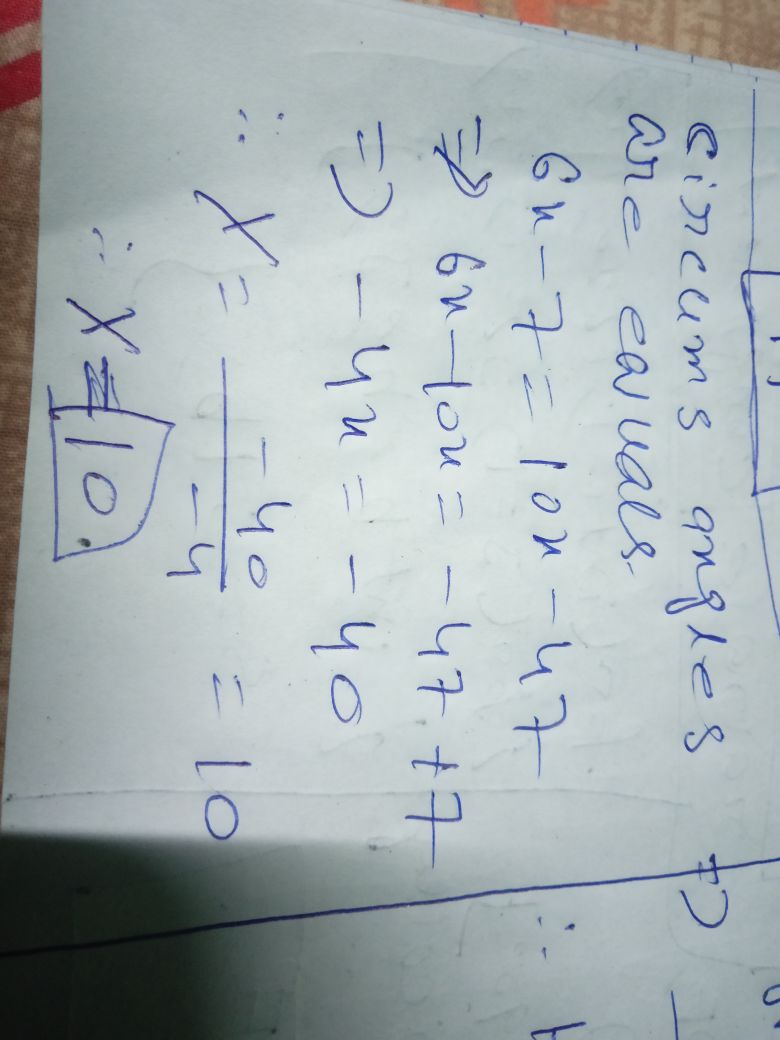 circums angles
are equals.
6x - 7 = 10x - 47
⇒ 6x - 10x = - 47 + 7
⇒ - 4x = - 40
∴ x = -40/-4 = 10
∴ x = 10